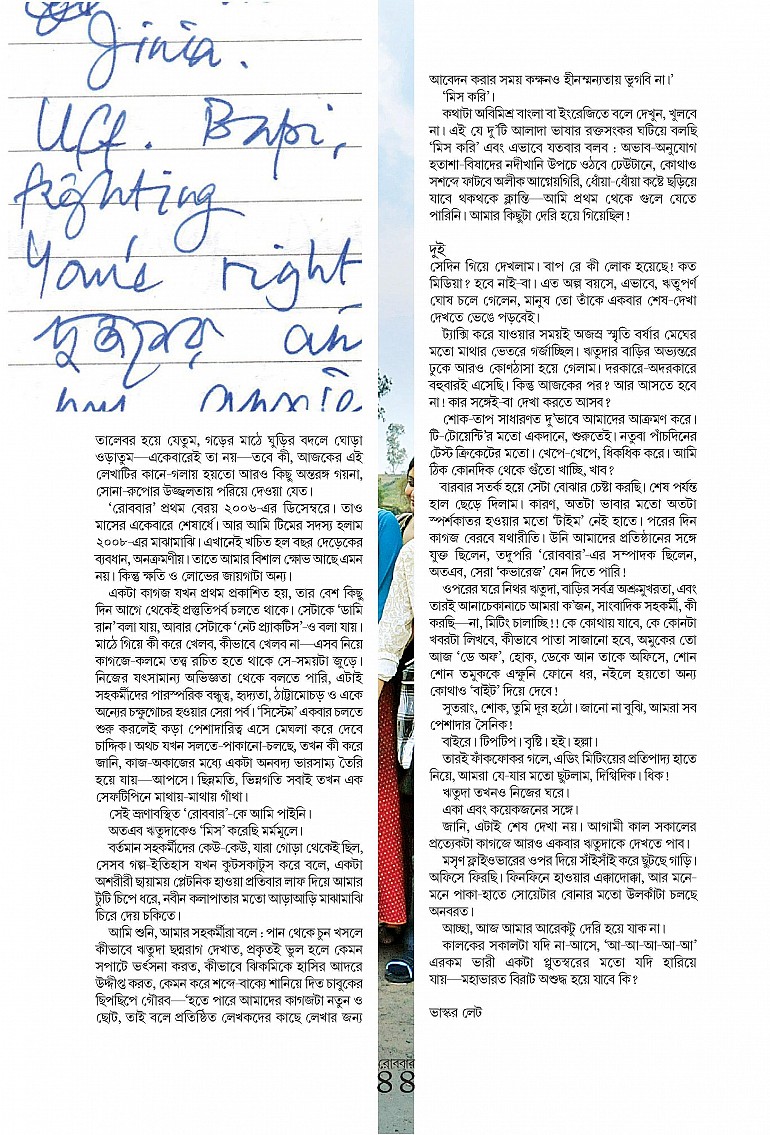 Jinia.
Uff. Bapi,
fighting
You're right
দুজনের an
তালেবর হয়ে যেতুম, গড়ের মাঠে ঘুড়ির বদলে ঘোড়া
ওড়াতুম—একেবারেই তা নয়—তবে কী, আজকের এই
লেখাটির কানে-গলায় হয়তো আরও কিছু অন্তরঙ্গ গয়না,
সোনা-রুপোর উজ্জ্বলতায় পরিয়ে দেওয়া যেত।
‘রোববার’ প্রথম বেরয় ২০০৬-এর ডিসেম্বরে। তাও
মাসের একেবারে শেষার্ধে। আর আমি টিমের সদস্য হলাম
২০০৮-এর মাঝামাঝি। এখানেই খচিত হল বছর দেড়েকের
ব্যবধান, অনক্রমণীয়। তাতে আমার বিশাল ক্ষোভ আছে এমন
নয়। কিন্তু ক্ষতি ও লোভের জায়গাটা অন্য।
একটা কাগজ যখন প্রথম প্রকাশিত হয়, তার বেশ কিছু
দিন আগে থেকেই প্রস্তুতিপর্ব চলতে থাকে। সেটাকে ‘ডামি
রান’ বলা যায়, আবার সেটাকে ‘নেট প্র্যাকটিস’-ও বলা যায়।
মাঠে গিয়ে কী করে খেলব, কীভাবে খেলব না—এসব নিয়ে
কাগজে-কলমে তত্ত্ব রচিত হতে থাকে সে-সময়টা জুড়ে।
নিজের যৎসামান্য অভিজ্ঞতা থেকে বলতে পারি, এটাই
সহকর্মীদের পারস্পরিক বন্ধুত্ব, হৃদ্যতা, ঠাট্টামোচড় ও একে
অন্যের চক্ষুগোচর হওয়ার সেরা পর্ব। ‘সিস্টেম’ একবার চলতে
শুরু করলেই কড়া পেশাদারিত্ব এসে মেঘলা করে দেবে
চাদ্দিক। অথচ যখন সলতে-পাকানো-চলছে, তখন কী করে
জানি, কাজ-অকাজের মধ্যে একটা অনবদ্য ভারসাম্য তৈরি
হয়ে যায়—আপসে। ছিন্নমতি, ভিন্নগতি সবাই তখন এক
সেফটিপিনে মাথায়-মাথায় গাঁথা।
সেই ভ্রূণাবস্থিত ‘রোববার’-কে আমি পাইনি।
অতএব ঋতুদাকেও ‘মিস’ করেছি মর্মমূলে।
বর্তমান সহকর্মীদের কেউ-কেউ, যারা গোড়া থেকেই ছিল,
সেসব গল্প-ইতিহাস যখন কুটসকাটুস করে বলে, একটা
অশরীরী ছায়াময় প্লেটনিক হাওয়া প্রতিবার লাফ দিয়ে আমার
টুঁটি চিপে ধরে, নবীন কলাপাতার মতো আড়াআড়ি মাঝামাঝি
চিরে দেয় চকিতে।
আমি শুনি, আমার সহকর্মীরা বলে : পান থেকে চুন খসলে
কীভাবে ঋতুদা ছদ্মরাগ দেখাত, প্রকৃতই ভুল হলে কেমন
সপাটে ভর্ৎসনা করত, কীভাবে ঝিকমিকে হাসির আদরে
উদ্দীপ্ত করত, কেমন করে শব্দে-বাক্যে শানিয়ে দিত চাবুকের
ছিপছিপে গৌরব—‘হতে পারে আমাদের কাগজটা নতুন ও
ছোট, তাই বলে প্রতিষ্ঠিত লেখকদের কাছে লেখার জন্য
আবেদন করার সময় কক্ষনও হীনম্মন্যতায় ভুগবি না।’
‘মিস করি’।
কথাটা অবিমিশ্র বাংলা বা ইংরেজিতে বলে দেখুন, খুলবে
না। এই যে দু’টি আলাদা ভাষার রক্তসংকর ঘটিয়ে বলছি
‘মিস করি’ এবং এভাবে যতবার বলব : অভাব-অনুযোগ
হতাশা-বিষাদের নদীখানি উপচে ওঠবে ঢেউটানে, কোথাও
সশব্দে ফাটবে অলীক আগ্নেয়গিরি, ধোঁয়া-ধোঁয়া কষ্টে ছড়িয়ে
যাবে থকথকে ক্লান্তি—আমি প্রথম থেকে গুলে যেতে
পারিনি। আমার কিছুটা দেরি হয়ে গিয়েছিল!
দুই
সেদিন গিয়ে দেখলাম। বাপ রে কী লোক হয়েছে! কত
মিডিয়া? হবে নাই-বা। এত অল্প বয়সে, এভাবে, ঋতুপর্ণ
ঘোষ চলে গেলেন, মানুষ তো তাঁকে একবার শেষ-দেখা
দেখতে ভেঙে পড়বেই।
ট্যাক্সি করে যাওয়ার সময়ই অজস্র স্মৃতি বর্ষার মেঘের
মতো মাথার ভেতরে গর্জাচ্ছিল। ঋতুদার বাড়ির অভ্যন্তরে
ঢুকে আরও কোণঠাসা হয়ে গেলাম। দরকারে-অদরকারে
বহুবারই এসেছি। কিন্তু আজকের পর? আর আসতে হবে
না! কার সঙ্গেই-বা দেখা করতে আসব?
শোক-তাপ সাধারণত দু’ভাবে আমাদের আক্রমণ করে।
টি-টোয়েন্টি’র মতো একদানে, শুরুতেই। নতুবা পাঁচদিনের
টেস্ট ক্রিকেটের মতো। খেপে-খেপে, ধিকধিক করে। আমি
ঠিক কোনদিক থেকে গুঁতো খাচ্ছি, খাব?
বারবার সতর্ক হয়ে সেটা বোঝার চেষ্টা করছি। শেষ পর্যন্ত
হাল ছেড়ে দিলাম। কারণ, অতটা ভাবার মতো অতটা
স্পর্শকাতর হওয়ার মতো ‘টাইম’ নেই হাতে। পরের দিন
কাগজ বেরবে যথারীতি। উনি আমাদের প্রতিষ্ঠানের সঙ্গে
যুক্ত ছিলেন, তদুপরি ‘রোববার’-এর সম্পাদক ছিলেন,
অতএব, সেরা ‘কভারেজ’ যেন দিতে পারি!
ওপরের ঘরে নিথর ঋতুদা, বাড়ির সর্বত্র অশ্রুমুখরতা, এবং
তারই আনাচেকানাচে আমরা ক’জন, সাংবাদিক সহকর্মী, কী
করছি—না, মিটিং চালাচ্ছি!! কে কোথায় যাবে, কে কোনটা
খবরটা লিখবে, কীভাবে পাতা সাজানো হবে, অমুকের তো
আজ ‘ডে অফ’, হোক, ডেকে আন তাকে অফিসে, শোন
শোন তমুককে এক্ষুনি ফোনে ধর, নইলে হয়তো অন্য
কোথাও ‘বাইট’ দিয়ে দেবে!
সুতরাং, শোক, তুমি দূর হঠো। জানো না বুঝি, আমরা সব
পেশাদার সৈনিক!
বাইরে। টিপটিপ। বৃষ্টি। হই। হল্লা।
তারই ফাঁকফোকর গলে, এডিং মিটিংয়ের প্রতিপাদ্য হাতে
নিয়ে, আমরা যে-যার মতো ছুটলাম, দিগ্বিদিক। ধিক!
ঋতুদা তখনও নিজের ঘরে।
একা এবং কয়েকজনের সঙ্গে।
জানি, এটাই শেষ দেখা না। আগামী কাল সকালের
প্রত্যেকটা কাগজে আরও একবার ঋতুদাকে দেখতে পাব।
মসৃণ ফ্লাইওভারের ওপর দিয়ে সাঁইসাঁই করে ছুটছে গাড়ি।
অফিসে ফিরছি। ফিনফিনে হাওয়ার এক্কাদোক্কা, আর মনে-
মনে পাকা-হাতে সোয়েটার বোনার মতো উলকাঁটা চলছে
অনবরত।
আচ্ছা, আজ আমার আরেকটু দেরি হয়ে যাক না।
কালকের সকালটা যদি না-আসে, ‘আ-আ-আ-আ-আ’
এরকম ভারী একটা প্লুতস্বরের মতো যদি হারিয়ে
যায়—মহাভারত বিরাট অশুদ্ধ হয়ে যাবে কি?
ভাস্কর লেট
রোববার
৪৪